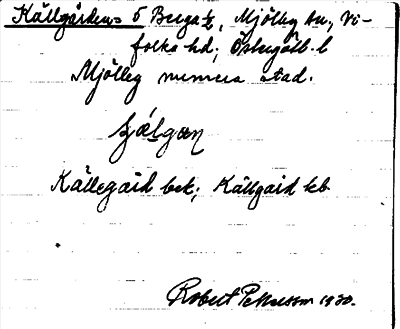 Källgården 5 Berga ½, Mjölby sn., Vi-
folka hd; Östergötl. l
Mjölby numera stad.
Källegård bek; Källgård kb
Robert Pettersson 1930.